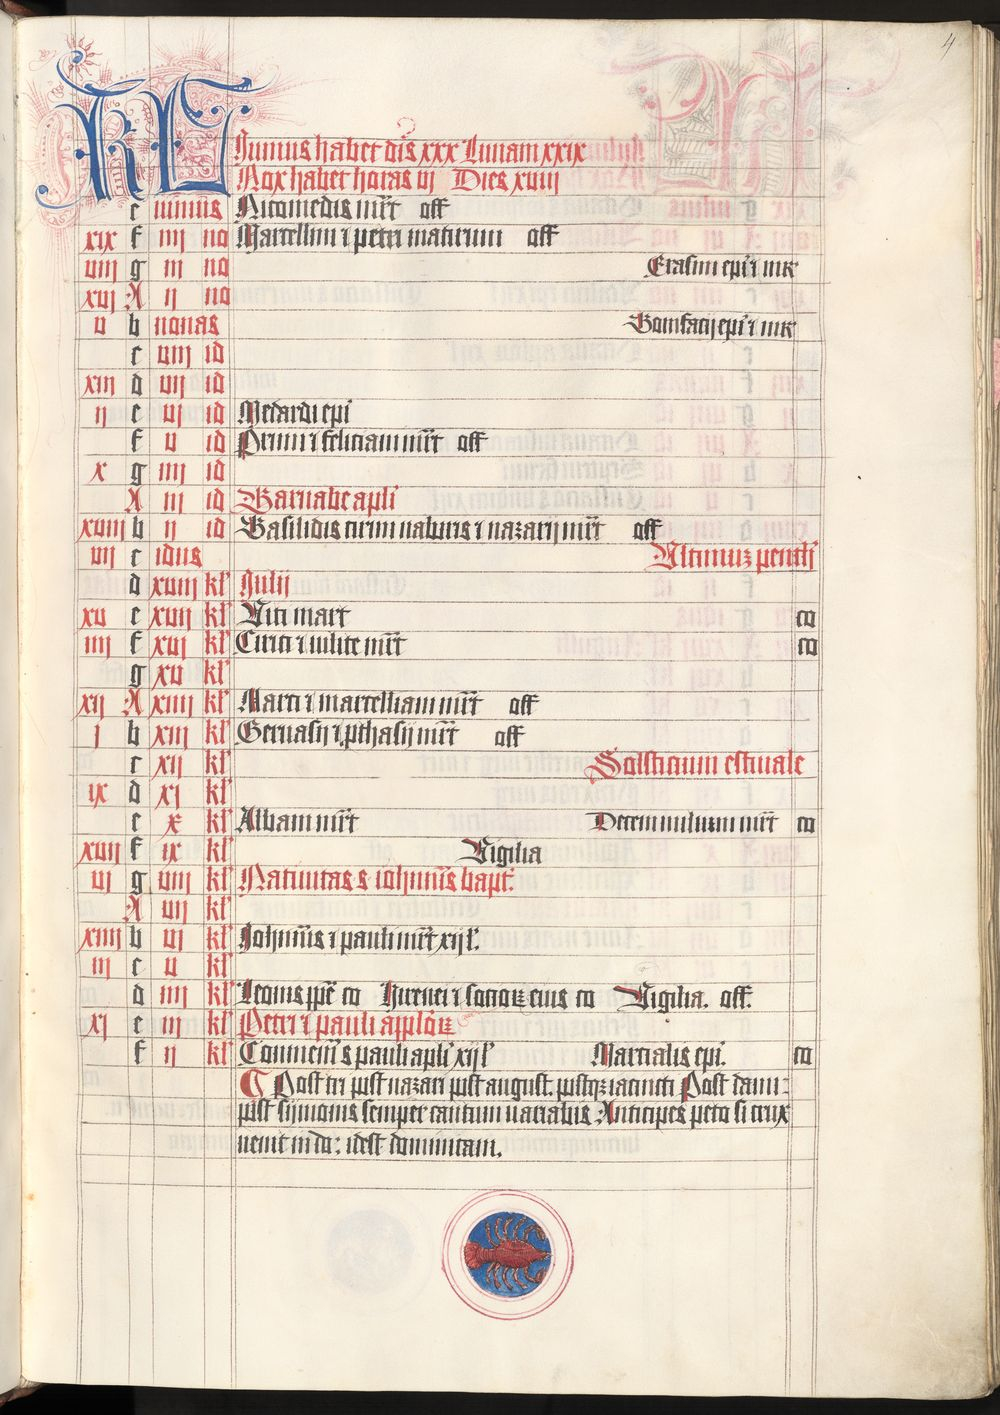 4
KL Iunius habet dīs xxx Lunam xxix
Nox habet horas vi Dies xviii
e iunius Nicomedis mr̄t off
xix f iiij no Marcellini ⁊ petri matirum off
viii g iii no Erasmi ep̄i ⁊ mr̄
xvj A ij no
v b nonas Bonifacij ep̄i ⁊ mr̄
c viii id
xiii d vij id
ij e vj id Medardi ep̄i
f v id Primi ⁊ feliciani mr̄t off
x g iiij id
A iii id Barnabe apl̄i
xviii b ij id Basilidis cirini naboris ⁊ nazarij mr̄t off
vii c idus Vltimus
d xviii kl̄ Julij
xv e xvij kl̄ Viti mart co
iiij f xvj kl̄ Cirici ⁊ iulite mr̄t co
g xv kl̄
xij A xiiii kl̄ Marci ⁊ marcelliani mr̄t off
j b xiii kl̄ Geruasij ⁊ ꝓthasij mr̄t off
c xij kl̄ Solsticium estiuale
ix d xj kl̄
e x kl̄ Albani mr̄t Decem milium mr̄t co
xvij f ix kl̄ Vigilia
vj g viii kl̄ Natiuitas s iohānis bapt.
A vij kl̄
xiiii b vj kl̄ Johānis ⁊ pauli mr̄t xij l̄.
iii c v kl̄
d iiij kl̄ Leonis pp̄e co Hirenei ⁊ socioꝝ eius co Vigilia. off.
xj e iii kl̄ Petri ⁊ pauli ap̄ploꝝ
f ij kl̄ Comem̄ s pauli apl̄i xij l̄ Marcialis ep̄i. co
¶ Post tri post nazari post august. postqꝫ iacincti Post dami:
post symonis semper cantum uariabis Anticipes peto si crux
uenit in do: idest dominicam.